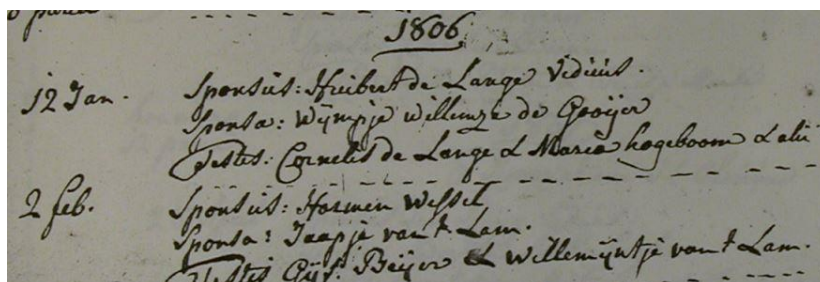 1806
12 Jan. Sponsus: Huibert de Lange Viduus.
Sponsa: Wijmpje Willemze de Gooijer
Testes: Cornelis de Lange & Maria hogeboom & alii
2 feb. Sponsus: Harmen Wessel
Sponsa: Jaapje van 't Lam.
Testes Gijs: Beijer & Willemijntje van 't Lam.